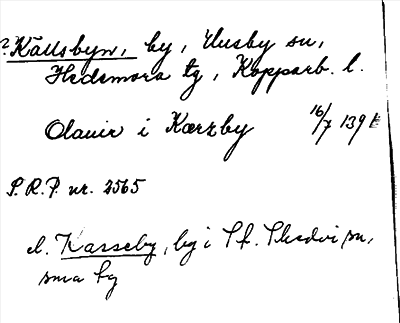 ? Källsbyn, by, Husby sn,
Hedemora tg, Kopparb. l.
Olauir i Kærzby 16/7 139
S.R.P. nr. 2565
el. Karseby, by i St. Skedvi sn,
sma tg